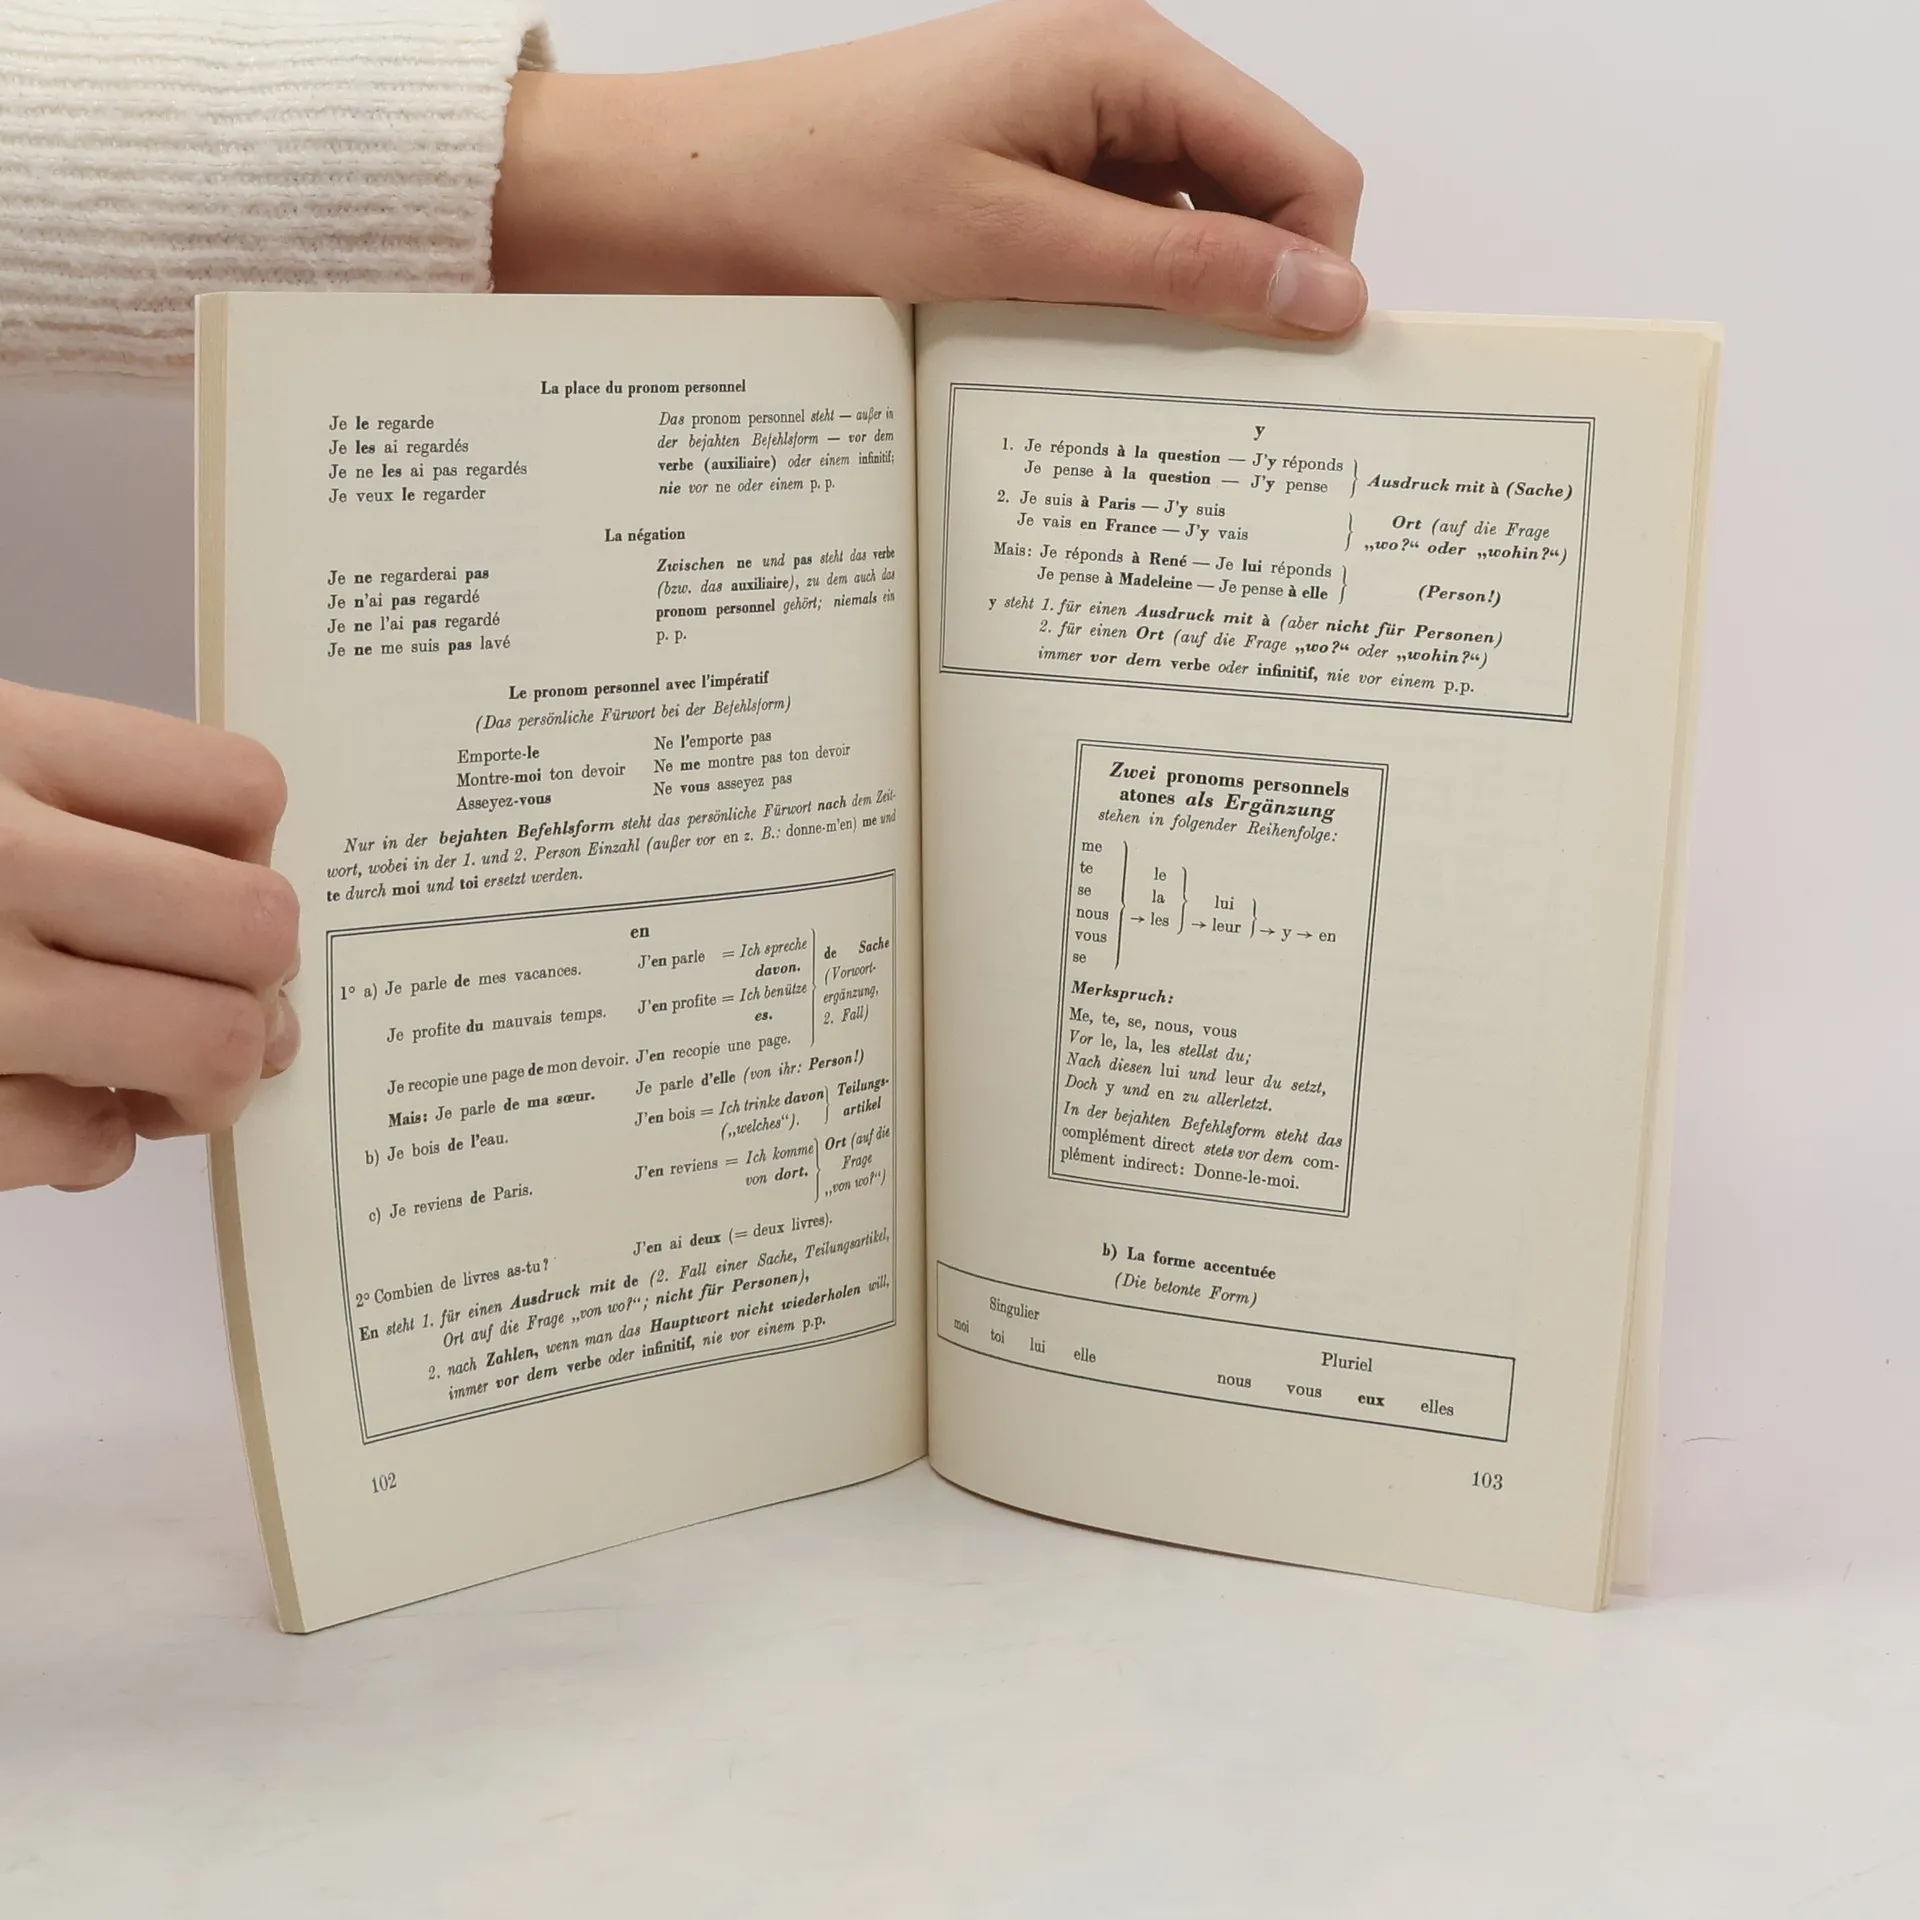 La place du pronom personnel
Je le regarde
Je les ai regardés
Je ne les ai pas regardés
Je veux le regarder
Das pronom personnel steht — außer in
der bejahten Befehlsform — vor dem
verbe (auxiliaire) oder einem infinitif;
nie vor ne oder einem p. p.
La négation
Je ne regarderai pas
Je n'ai pas regardé
Je ne l'ai pas regardé
Je ne me suis pas lavé
Zwischen ne und pas steht das verbe
(bzw. das auxiliaire), zu dem auch das
pronom personnel gehört; niemals ein
p. p.
Le pronom personnel avec l'impératif
(Das persönliche Fürwort bei der Befehlsform)
Emporte-le Ne l'emporte pas
Montre-moi ton devoir Ne me montre pas ton devoir
Asseyez-vous Ne vous asseyez pas
Nur in der bejahten Befehlsform steht das persönliche Fürwort nach dem Zeit-
wort, wobei in der 1. und 2. Person Einzahl (außer vor en z. B.: donne-m'en) me und
te durch moi und toi ersetzt werden.
en
1° a) Je parle de mes vacances. J'en parle = Ich spreche
davon.
Je profite du mauvais temps. J'en profite = Ich benütze
es.
de Sache
(Vorwort-
ergänzung,
2. Fall)
Je recopie une page de mon devoir. J'en recopie une page.
Mais: Je parle de ma sœur. Je parle d'elle (von ihr: Person!)
b) Je bois de l'eau. J'en bois = Ich trinke davon
(„welches“).
Teilungs-
artikel
c) Je reviens de Paris. J'en reviens = Ich komme
von dort.
Ort (auf die
Frage
„von wo?“)
2° Combien de livres as-tu? J'en ai deux (= deux livres).
En steht 1. für einen Ausdruck mit de (2. Fall einer Sache, Teilungsartikel,
Ort auf die Frage „von wo?“; nicht für Personen),
2. nach Zahlen, wenn man das Hauptwort nicht wiederholen will,
immer vor dem verbe oder infinitif, nie vor einem p.p.
102
y
1. Je réponds à la question — J'y réponds
Je pense à la question — J'y pense
Ausdruck mit à (Sache)
2. Je suis à Paris — J'y suis
Je vais en France — J'y vais
Ort (auf die Frage
„wo?“ oder „wohin?“)
Mais: Je réponds à René — Je lui réponds
Je pense à Madeleine — Je pense à elle
(Person!)
y steht 1. für einen Ausdruck mit à (aber nicht für Personen)
2. für einen Ort (auf die Frage „wo?“ oder „wohin?“)
immer vor dem verbe oder infinitif, nie vor einem p.p.
Zwei pronoms personnels
atones als Ergänzung
stehen in folgender Reihenfolge:
me
te
se
nous
vous
se
→ le
la
les
→ lui
leur
→ y → en
Merkspruch:
Me, te, se, nous, vous
Vor le, la, les stellst du;
Nach diesen lui und leur du setzt,
Doch y und en zu allerletzt.
In der bejahten Befehlsform steht das
complément direct stets vor dem com-
plément indirect: Donne-le-moi.
b) La forme accentuée
(Die betonte Form)
Singulier
moi toi lui elle
Pluriel
nous vous eux elles
103